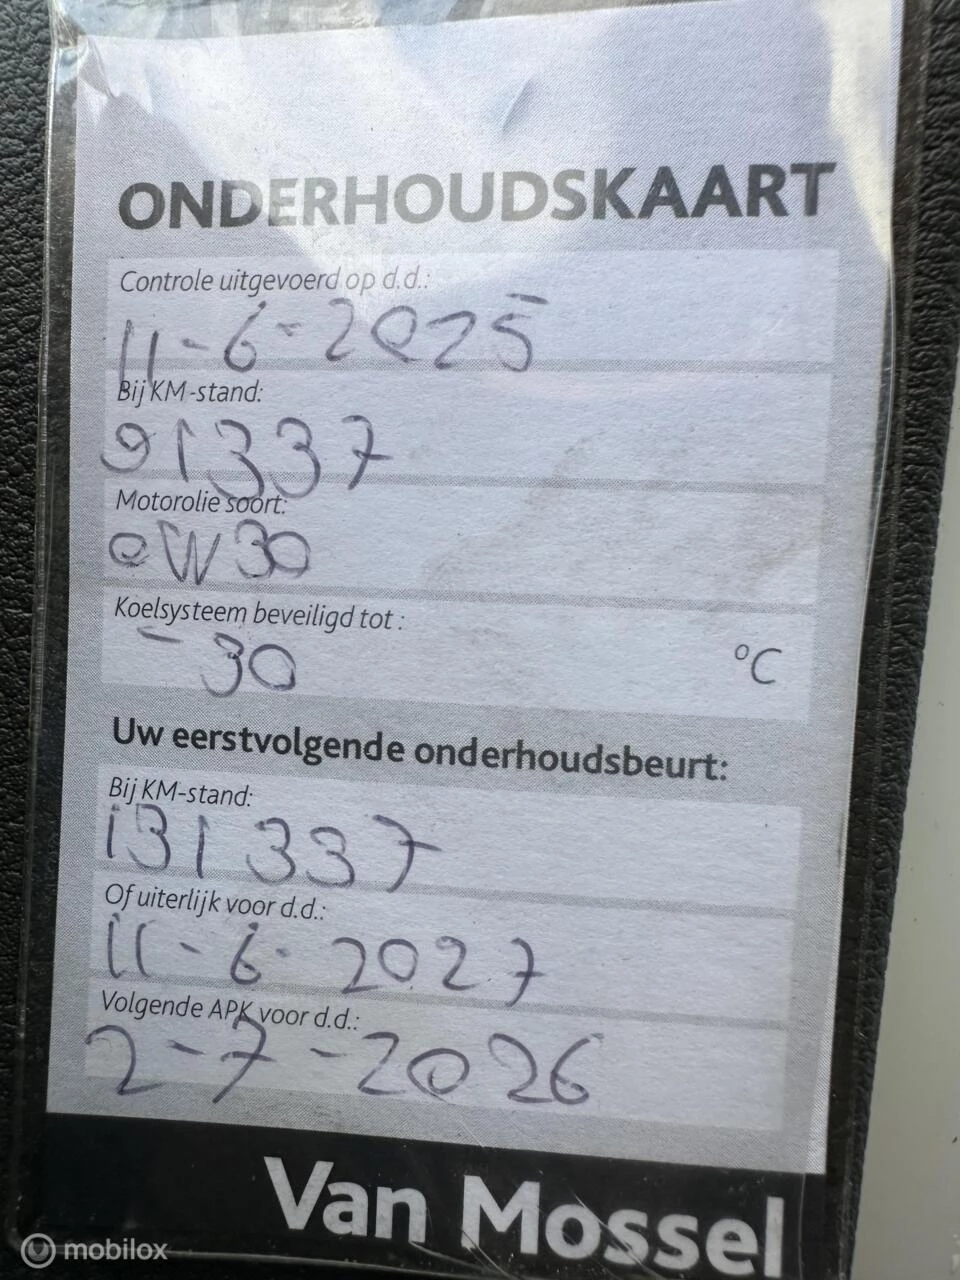 ONDERHOUDSKAART
Controle uitgevoerd op d.d.:
11-6-2025
Bij KM-stand:
91337
Motorolie soort:
0W30
Koelsysteem beveiligd tot :
-30 °C
Uw eerstvolgende onderhoudsbeurt:
Bij KM-stand:
131337
Of uiterlijk voor d.d.:
11-6-2027
Volgende APK voor d.d.:
2-7-2026
Van Mossel
mobilox